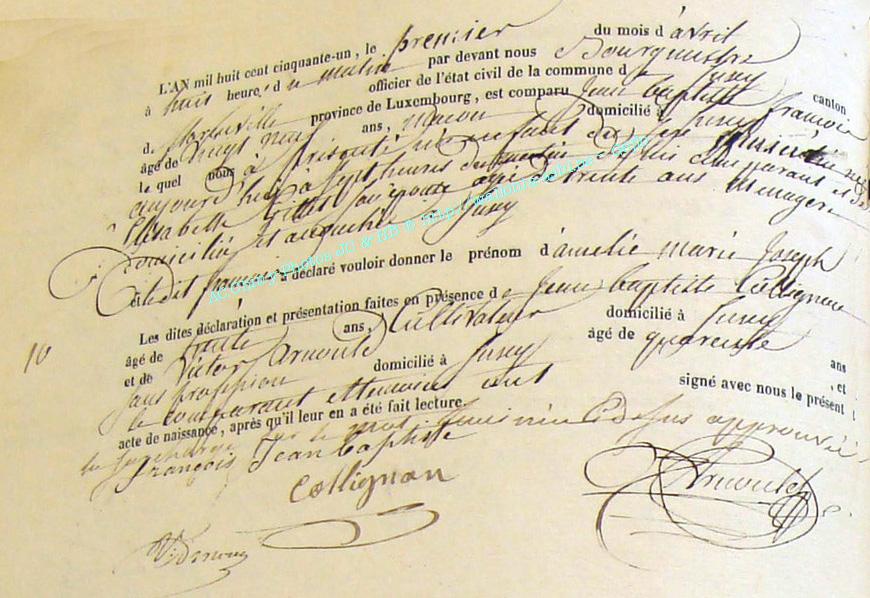 L'AN mil huit cent cinquante-un, le premier du mois d'avril
à huit heures d u matin par devant nous Bourgmestre
officier de l'état civil de la commune d e Jusey canton
d province de Luxembourg, est comparu Jean Baptiste françois
âgé de vingt neuf ans, maçon domicilié à Jusey
le quel nous a présenté un enfant du sexe
aujourd'hui à sept heures du matin de lui comparant et de
Elisabeth Gilles son épouse agé de trente ans menagere
domiciliée et à Jusey
et ledit françois a déclaré vouloir donner le prénom d'amelie marie Joseph
Les dites déclaration et présentation faites en présence d e Jean baptiste Collignon
âgé de trente ans, Cultivateur domicilié à Jusey
et de Victor Arnould âgé de quarente ans
sans profession domicilié à Jusey , et
le comparant et temoins ont signé avec nous le présent
acte de naissance, après qu'il leur en a été fait lecture.
la surcharge sur le mot feminin Cidessus approuvée
françois Jean baptiste
Collignon
Arnould
10